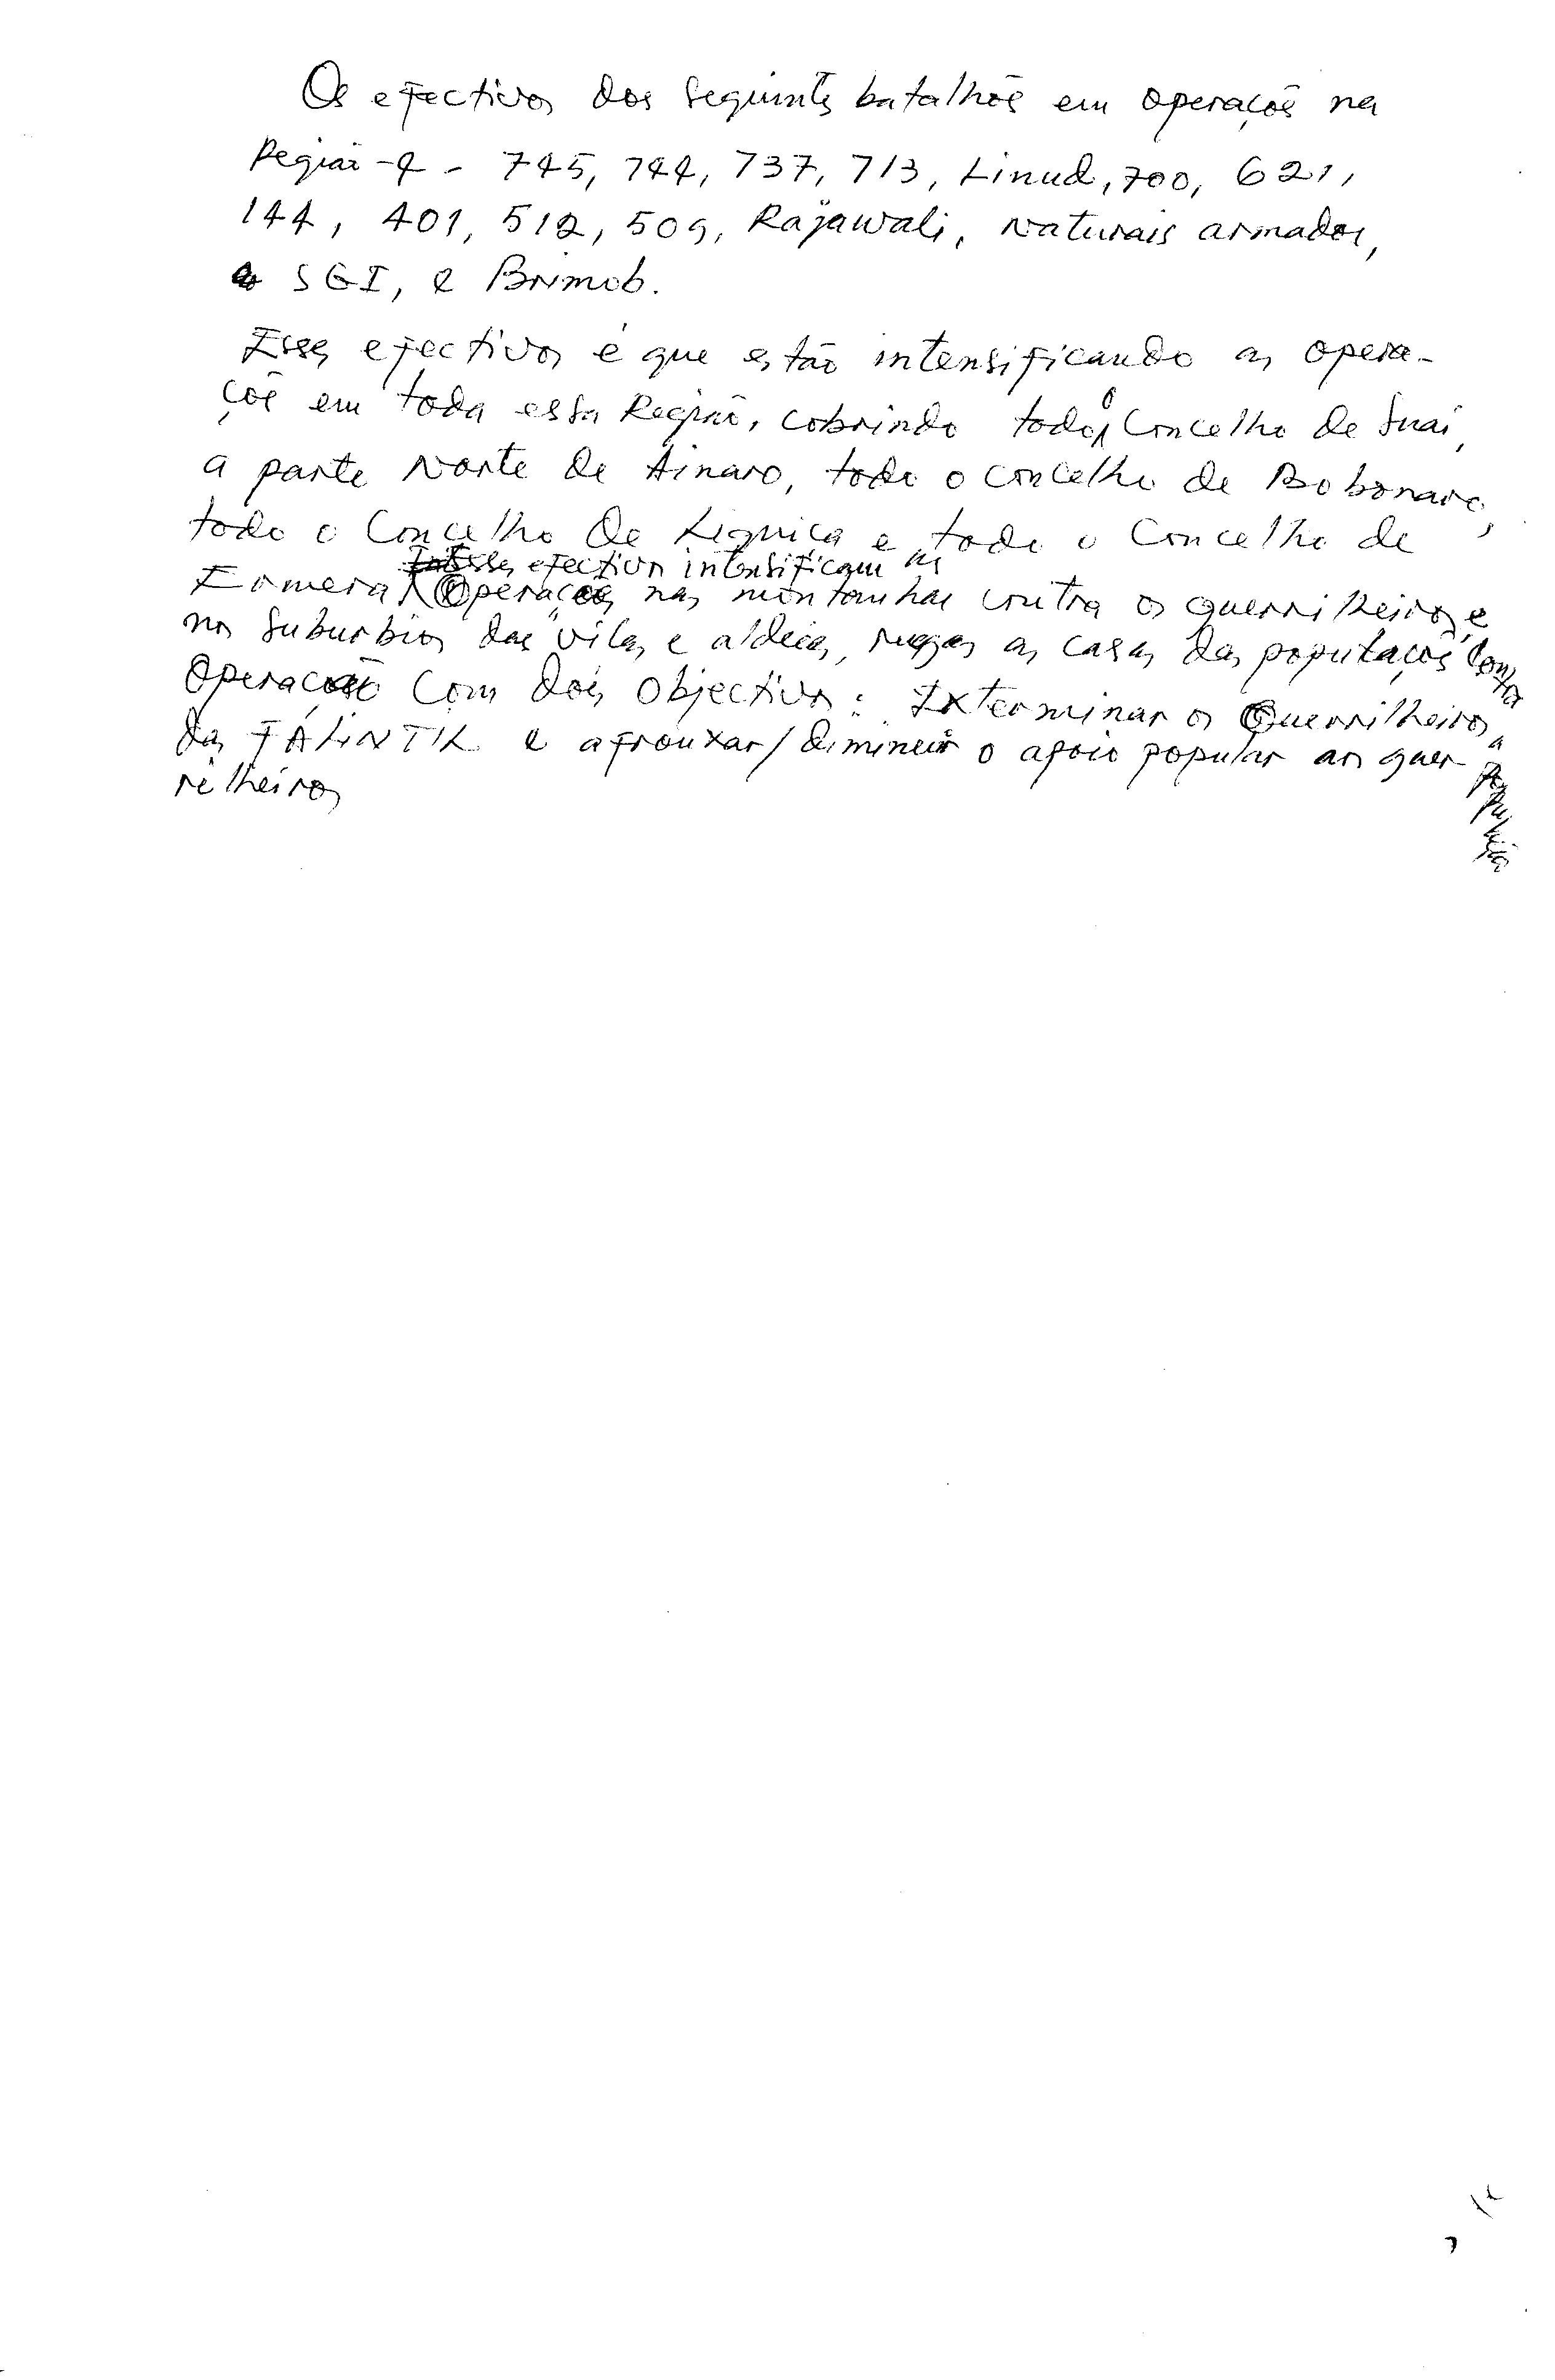 Os efectivos dos seguintes batalhões em operações na
Região-4 - 745, 744, 737, 713, Linud, 700, 621,
144, 401, 512, 509, Rajawali, Naturais armados,
SGI, e Brimob.
Esses efectivos é que estão intensificando as opera-
ções em toda essa Região, cobrindo todo o Concelho de Suai,
a parte Norte de Ainaro, todo o concelho de Bobonaro,
todo o Concelho de Liquiça e todo o Concelho de
Esses efectivos intensificam as
Ermera. Operações nas montanhas contra os guerrilheiros, e
nos suburbios das vilas e aldeias, as casas das populações contra
a população
Operação com dois objectivos: Exterminar os Guerrilheiros
das FALINTIL e afrouxar/diminuir o apoio popular aos guer-
rilheiros